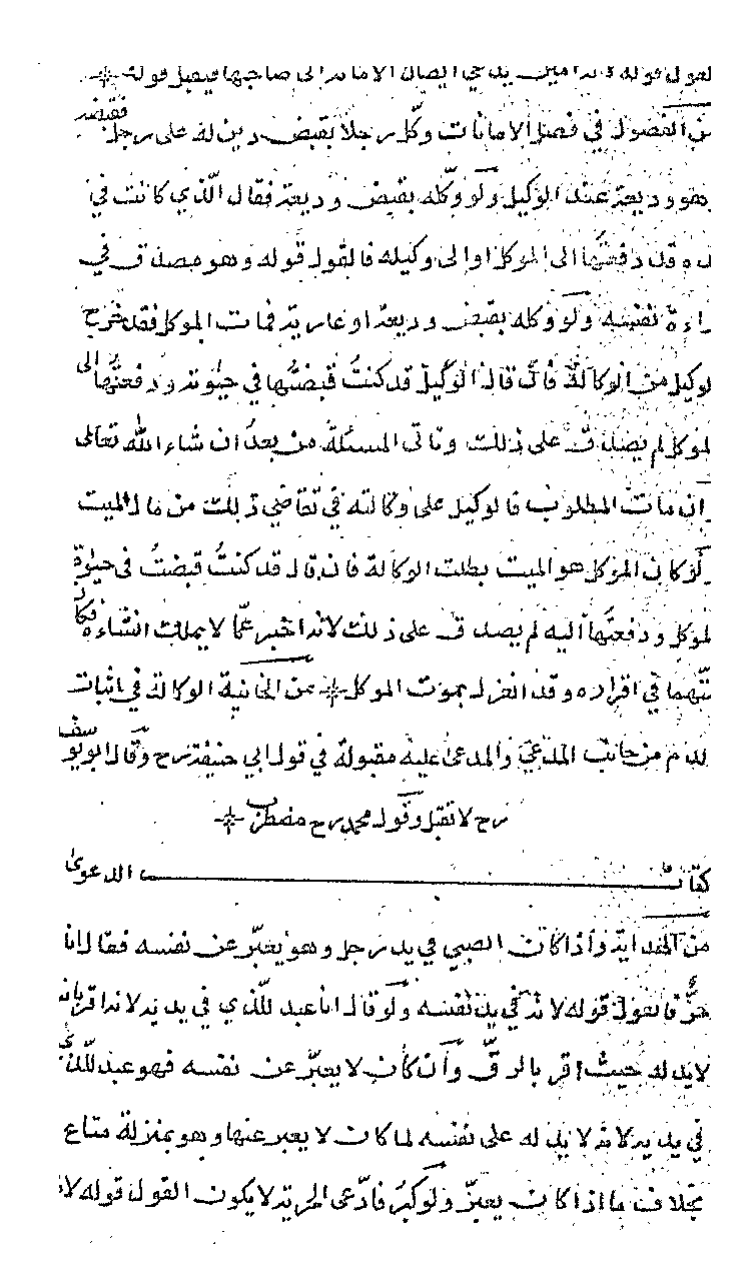 القول قوله لانه امين يدعي ايصال الامانة الى صاحبها فيقبل قوله
من الفصول في فصل الامانات وكّل رجلا بقبض دين له على رجل فقبضه
وهو وديعة عند الوكيل ولو وكّله بقبض وديعة فقال الّذي كانت في
يده قد دفعتُها الى الموكل او الى وكيله فالقول قوله وهو مصدق في
براءة نفسه ولو وكله بقبض وديعة او عارية فمات الموكل فقد خرج
الوكيل من الوكالة فان قال الوكيل قد كنتُ قبضتُها في حيٰوته ودفعتُها الى
الموكل لم يصدق على ذلك وتاتى المسئلة من بعدُ ان شاء الله تعالى
وان مات المطلوب فالوكيل على وكالته في تقاضي ذلك من مال الميت
ولو كان الموكل هو الميت بطلت الوكالة فان قال قد كنتُ قبضتُ في حيٰوة
الموكل ودفعتُها اليه لم يصدق على ذلك لانه اخبر عمّا لا يملك انشاءه فكان
متّهما في اقراره وقد انعزل بموت الموكل من الخانية الوكالة في اثبات
الدم من جانب المدعي والمدعى عليه مقبولة في قول ابي حنيفة رح وقال ابو يوسف
رح لا تقبل وقول محمد رح مضطرب
كتاب الدعوىٰ
من الهداية واذا كان الصبي في يد رجل وهو يعبّر عن نفسه فقال انا
حرٌّ فالقول قوله لانه في يد نفسه ولو قال انا عبد للّذي في يديه لانه اقر بانه
لا يد له حيث اقر بالرقّ وان كان لا يعبّر عن نفسه فهو عبد للّذي
في يديه لانه لا يد له على نفسه لما كان لا يعبر عنها وهو بمنزلة متاع
بخلاف ما اذا كان يعبّر ولو كبُر فادّعى الحرية لا يكون القول قوله لانه